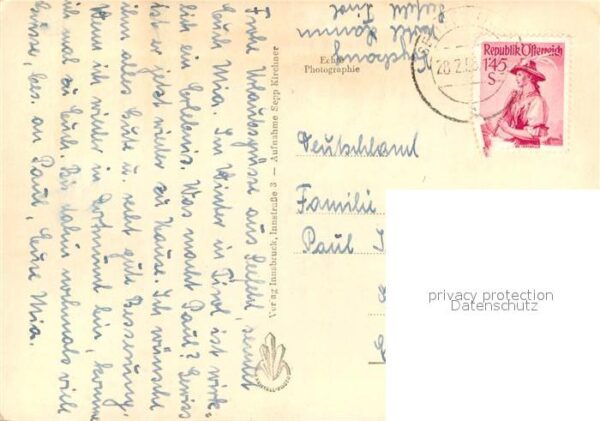 Frohe Urlaubsgrüsse aus Seefeld, sendet
Euch Mia. Im Winter in Tirol ist wirk-
lich ein Erlebnis. Was macht Paul? Gewiss
ist er jetzt wieder zu Hause. Ich wünsche
ihm alles Gute u. recht gute Besserung.
Wenn ich wieder in Dortmund bin, komme
ich mal zu Euch. Bis dahin nochmals viele
Grüsse, bes. an Paul, Eure Mia.
Verlag Innsbruck, Innstraße 3 — Aufnahme Sepp Kirchner
Echte
Photographie
28.2.5
Republik Österreich
1'45
S
Deutschland
Familie
Paul
privacy protection
Datenschutz